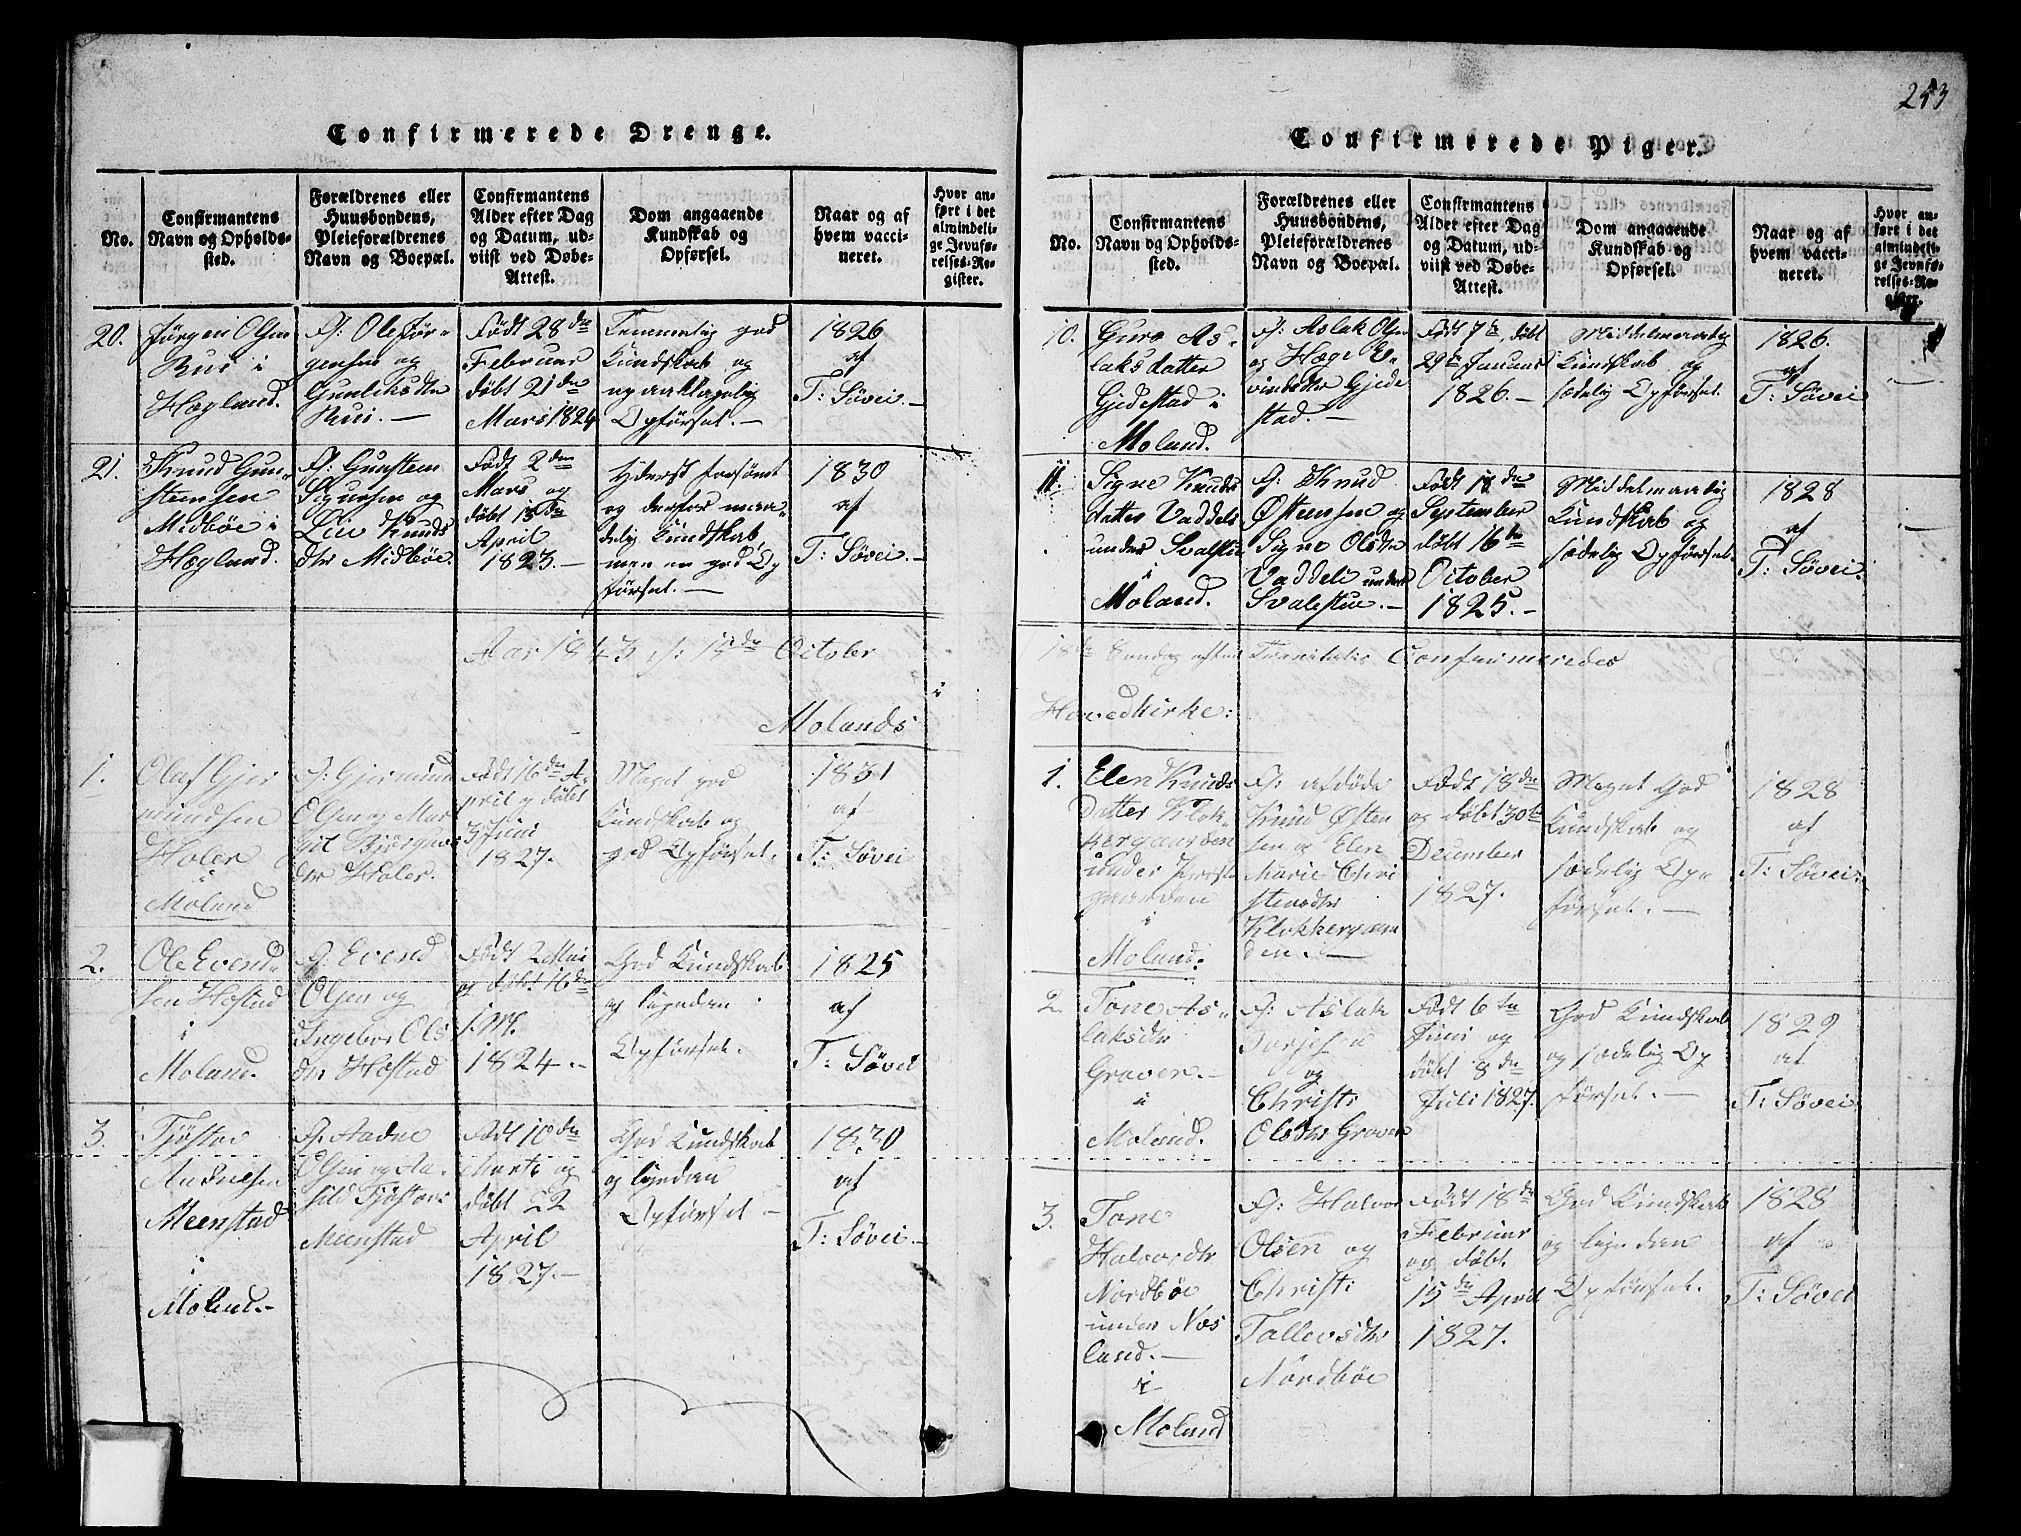 Confirmerede Drenge.
No.
Confirmantens
Navn og Opholds-
sted.
Forældrenes eller
Huusbondens,
Pleieforældrenes
Navn og Boepæl.
Confirmantens
Alder efter Dag
og Datum, ud-
viist ved Døbe-
Attest.
Dom angaaende
Kundskab og
Opførsel.
Naar og af
hvem vacci-
neret.
Hvor an-
ført i det
almindeli-
ge Jevnfø-
relses-Re-
gister.
20.
Jørgen Olsen
Rui i
Høgland.
F: Ole Jør-
gensen og
Gunliksdtr
Rui. –
Født 28de
Februar
døbt 21de
Mars 1824
Temmelig god
Kundskab og
upaaklagelig
Opførsel. –
1826
af
T: Søvei. –
21.
Knud Gun-
stensen
Midbøe i
Høgland.
F: Gunsten
Sigursen og
Liv Knuds
dtr Midbøe.
Født 2den
Mars og
døbt 13de
April
1823. –
Yderst forsømt
og derfor maa-
delig Kundskab,
men en god Op
førsel. –
1830
af
T: Søvei. –
Aar 1843 d: 15de October
Molands
1.
Olaf Gjer
mundsen
Holer
i
Moland
F: Gjermund
Olsen og Mar
git Bjørgus
dtr Holer.
Født 16de A-
pril og døbt
3 Juni
1827.
Meget god
Kundskab og
god Opførsel.
1831
af
T: Søvei
2.
Ole Evend-
sen Hostad
i
Moland.
F: Evend
Olsen og
Ingebor Ols
dtr Hostad
Født 2 Mai
og døbt 16de
1824. –
God Kundskab
og ligedan
Opførsel.
1825
af
T: Søvei
3.
Tjøstov
Aadnesen
Meenstad
i
Moland. –
F: Aadne
Olsen og Aa-
sild Tjøstovs
Meenstad
Født 10de
Marts og
døbt 22
April
1827. –
God Kundskab
og ligedan
Opførsel –
1830
af
T: Søvei. –
253
Confirmerede Piger.
No.
Confirmantens
Navn og Opholds-
sted.
Forældrenes eller
Huusbondens,
Pleieforældrenes
Navn og Boepæl.
Confirmantens
Alder efter Dag
og Datum, ud-
viist ved Døbe-
Attest.
Dom angaaende
Kundskab og
Opførsel.
Naar og af
hvem vacci-
neret.
Hvor an-
ført i det
almindeli-
ge Jevnfø-
relses-Re-
gister.
10.
Guro As-
laksdatter
Gjedestad i
Moland.
F: Aslak Olsen
og Hæge E-
vindsdtr Gjede
stad. –
Født 7de, døbt
29de Januar
1826. –
Middelmaadig
Kundskab og
sædelig Opførsel.
1826.
af
T: Søvei
11.
Signe Knuds
datter Vaddeli
under Svalestue
i
Moland.
F: Knud
Østensen og
Signe Olsdtr
Vaddeli under
Svalestue. –
Født 18de
September
døbt 16de
October
1825. –
Middelmaadig
Kundskab og
sædelig Opførsel.
1828
af
T: Søvei.
18de Søndag efter Trinitatis Confirmeredes i
Hovedkirke:
1.
Elen Knuds
Datter Klok-
kergaarden
under Præste
gaarden
i
Moland.
F: afdøde
Knud Østen
sen og Elen
Marie Chri
stensdtr
Klokkergaar
den. –
Født 18de
og døbt 30te
December
1827.
Meget God
Kundskab og
sædelig Op-
førsel. –
1828
af
T: Søvei
2.
Tone As-
laksdtr
Graver. –
i
Moland.
F: Aslak
og
Christi
Olsdtr Graver
Født 6te
Juni og
døbt 8de
Juli 1827.
God Kundskab
og sædelig Op
førsel. –
1829
af
T: Søvei
3.
Tone
Halvordtr
Nordbøe
under Næs
land. –
i
Moland
F: Halvor
Olsen og
Christi
Tallevsdtr
Nordbøe
Født 18de
Februar
og døbt
15de April
1827.
God Kundskab
og ligedan
Opførsel.
1828
af
T: Søvei